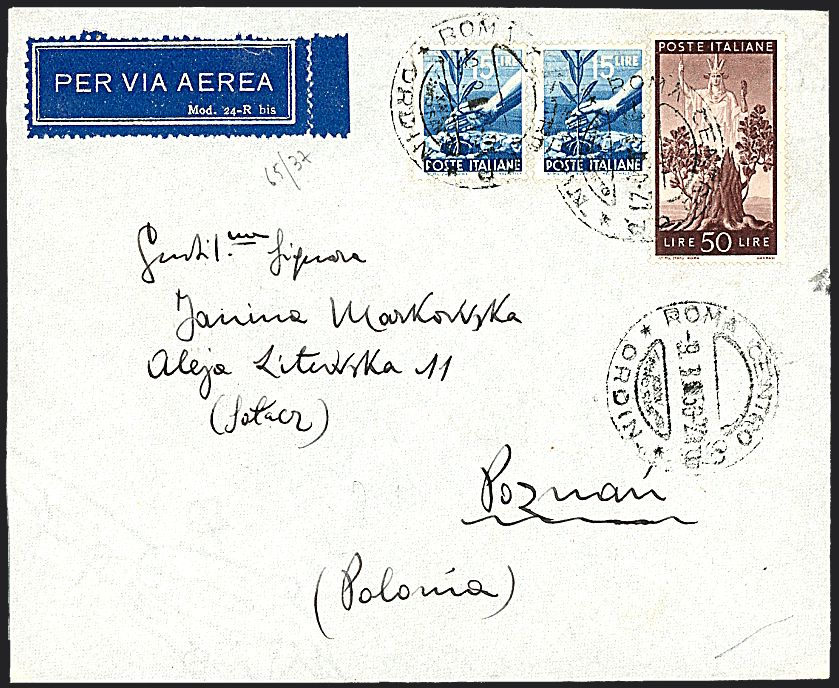 PER VIA AEREA
Mod. 24-R bis
15 LIRE
POSTE ITALIANE
15 LIRE
POSTE ITALIANE
POSTE ITALIANE
LIRE 50 LIRE
ROMA
ROMA CENTRO
65/37
Gentil.ma Signora
Janina Markowska
Aleja Litewska 11
(Sołacz)
ROMA CENTRO
ORDIN
Poznań
(Polonia)